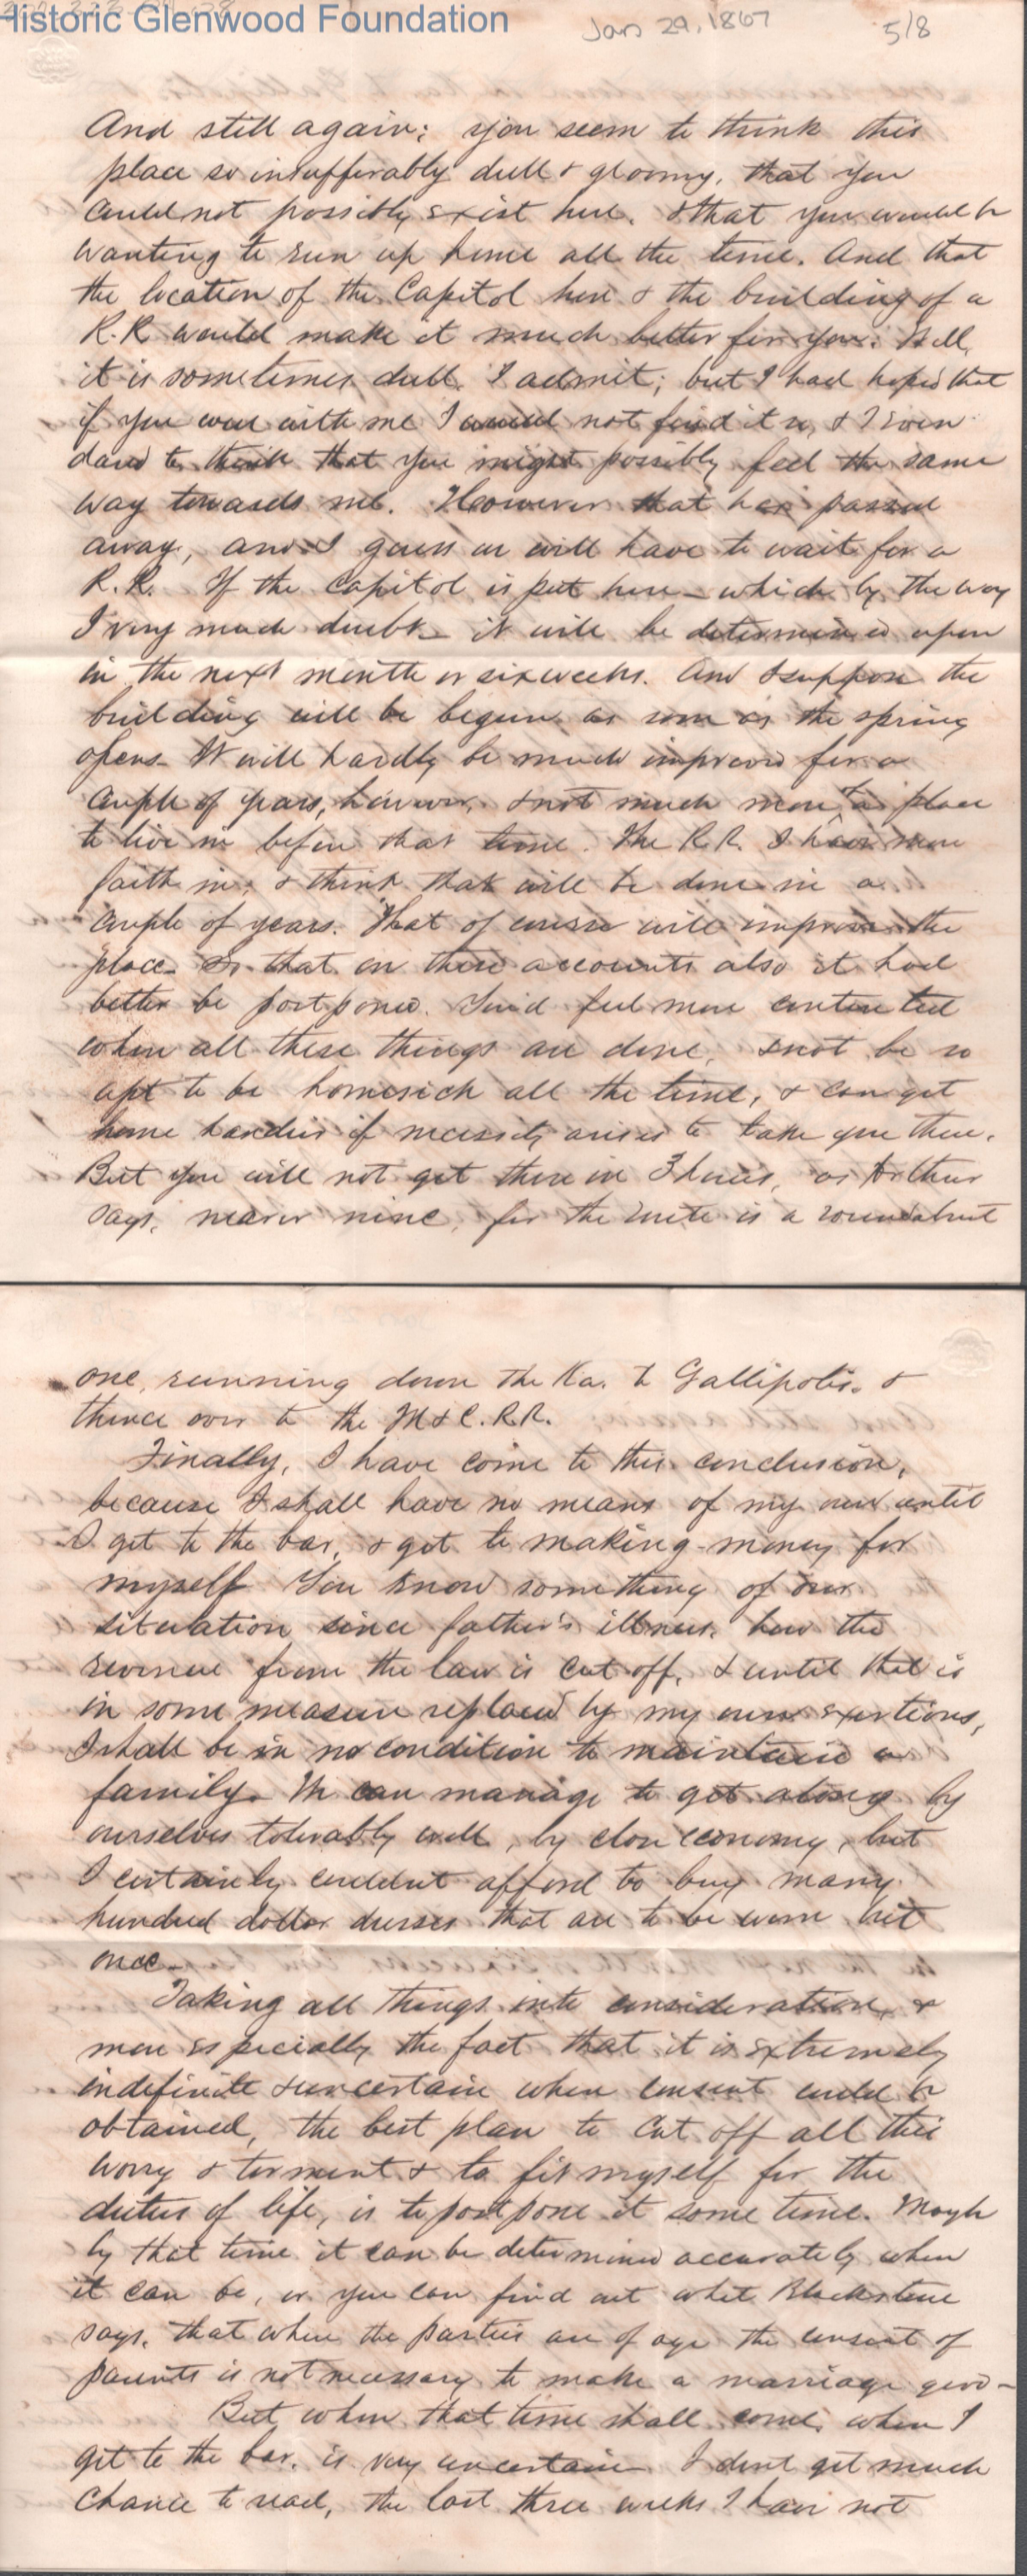 Historic Glenwood Foundation
Jan 29, 1867
5/8
And still again; you seem to think this
place so insufferably dull & gloomy, that you
could not possibly exist here. & that you would be
wanting to run up home all the time. And that
the location of the Capitol here & the building of a
R.R would make it much better for you. Well,
it is sometimes dull I admit; but I had hoped that
if you were with me I would not find it so, & I even
dared to think that you might possibly feel the same
way towards me. However that has passed
away, and I guess we will have to wait for a
R.R. If the Capitol is put here – which by the way
I very much doubt – it will be determined upon
in the next month or six weeks. And I suppose the
building will be begun as soon as the spring
opens. It will hardly be much improved for a
couple of years, however, & not much more of a place
to live in before that time. The R.R. I have more
faith in, & think that will be done in a
couple of years. That of course will improve the
place. So that on these accounts also it had
better be postponed. You'd feel more contented
when all these things are done, & not be so
apt to be homesick all the time, & can get
home handier if necessity arises to take you there.
But you will not get there in 3 hours, as Arthur
says, nearer nine, for the route is a roundabout
one, running down the Ka. to Gallipolis. &
thence over to the M & C. R.R.
Finally, I have come to this conclusion,
because I shall have no means of my own until
I get to the bar, & get to making money for
myself You know something of our
situation since father's illness, how the
revenue from the law is cut off, & until that is
in some measure replaced by my own exertions,
I shall be in no condition to maintain a
family. We can manage to get along by
ourselves tolerably well, by close economy, but
I certainly couldn't afford to buy many
hundred dollar dresses that are to be worn but
once –
Taking all things into consideration, &
more especially the fact that it is extremely
indefinite & uncertain when consent could be
obtained, the best plan to cut off all this
worry & torment & to fit myself for the
duties of life, is to postpone it some time. Maybe
by that time it can be determined accurately when
it can be, or you can find out what Blackstone
says, that when the parties are of age the consent of
parents is not necessary to make a marriage good –
But when that time shall come, when I
get to the bar, is very uncertain I dont get much
chance to read, the last three weeks I have not